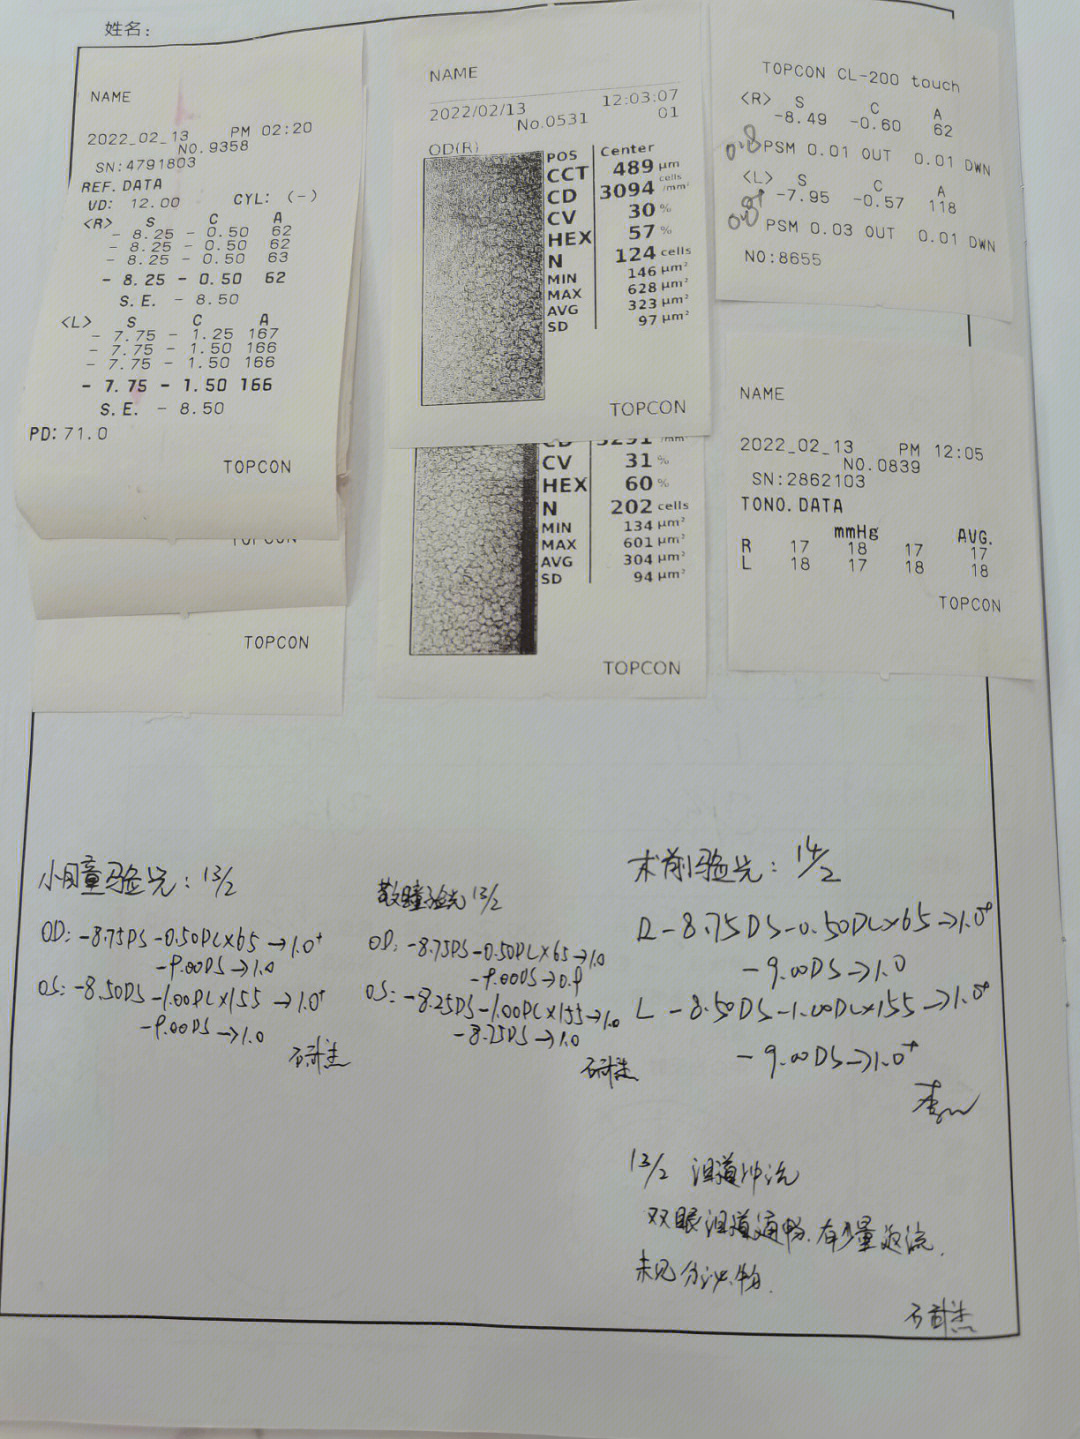 姓名:
NAME
2022_02_13 PM 02:20
NO.9358
SN:4791803
REF.DATA
VD: 12.00 CYL: (-)
<R> S C A
- 8.25 - 0.50 62
- 8.25 - 0.50 62
- 8.25 - 0.50 63
- 8.25 - 0.50 62
S.E. - 8.50
<L> S C A
- 7.75 - 1.25 167
- 7.75 - 1.50 166
- 7.75 - 1.50 166
- 7.75 - 1.50 166
S.E. - 8.50
PD:71.0
TOPCON
TOPCON
TOPCON
NAME
2022/02/13 12:03:07
No.0531 01
OD(R)
POS Center
CCT 489 μm
CD 3094 cells/mm²
CV 30 %
HEX 57 %
N 124 cells
MIN 146 μm²
MAX 628 μm²
AVG 323 μm²
SD 97 μm²
TOPCON
CD 3291 /mm²
CV 31 %
HEX 60 %
N 202 cells
MIN 134 μm²
MAX 601 μm²
AVG 304 μm²
SD 94 μm²
TOPCON
TOPCON CL-200 touch
<R> S C A
-8.49 -0.60 62
PSM 0.01 OUT 0.01 DWN
<L> S C A
-7.95 -0.57 118
PSM 0.03 OUT 0.01 DWN
NO:8655
NAME
2022_02_13 PM 12:05
NO.0839
SN:2862103
TONO.DATA
mmHg AVG.
R 17 18 17 17
L 18 17 18 18
TOPCON
小瞳验光: 13/2
OD: -8.75DS -0.50DC×65→1.0⁺
-9.00DS→1.0
OS: -8.50DS -1.00DC×155→1.0⁺
-9.00DS→1.0
散瞳验光 13/2
OD: -8.75DS -0.50DC×65→1.0
-9.00DS→0.9
OS: -8.25DS -1.00DC×155→1.0
-8.75DS→1.0
术前验光: 14/2
R -8.75DS -0.50DC×65→1.0⁺
-9.00DS→1.0
L -8.50DS -1.00DC×155→1.0⁺
-9.00DS→1.0⁺
13/2 泪道冲洗
双眼泪道通畅.有少量返流.
未见分泌物.